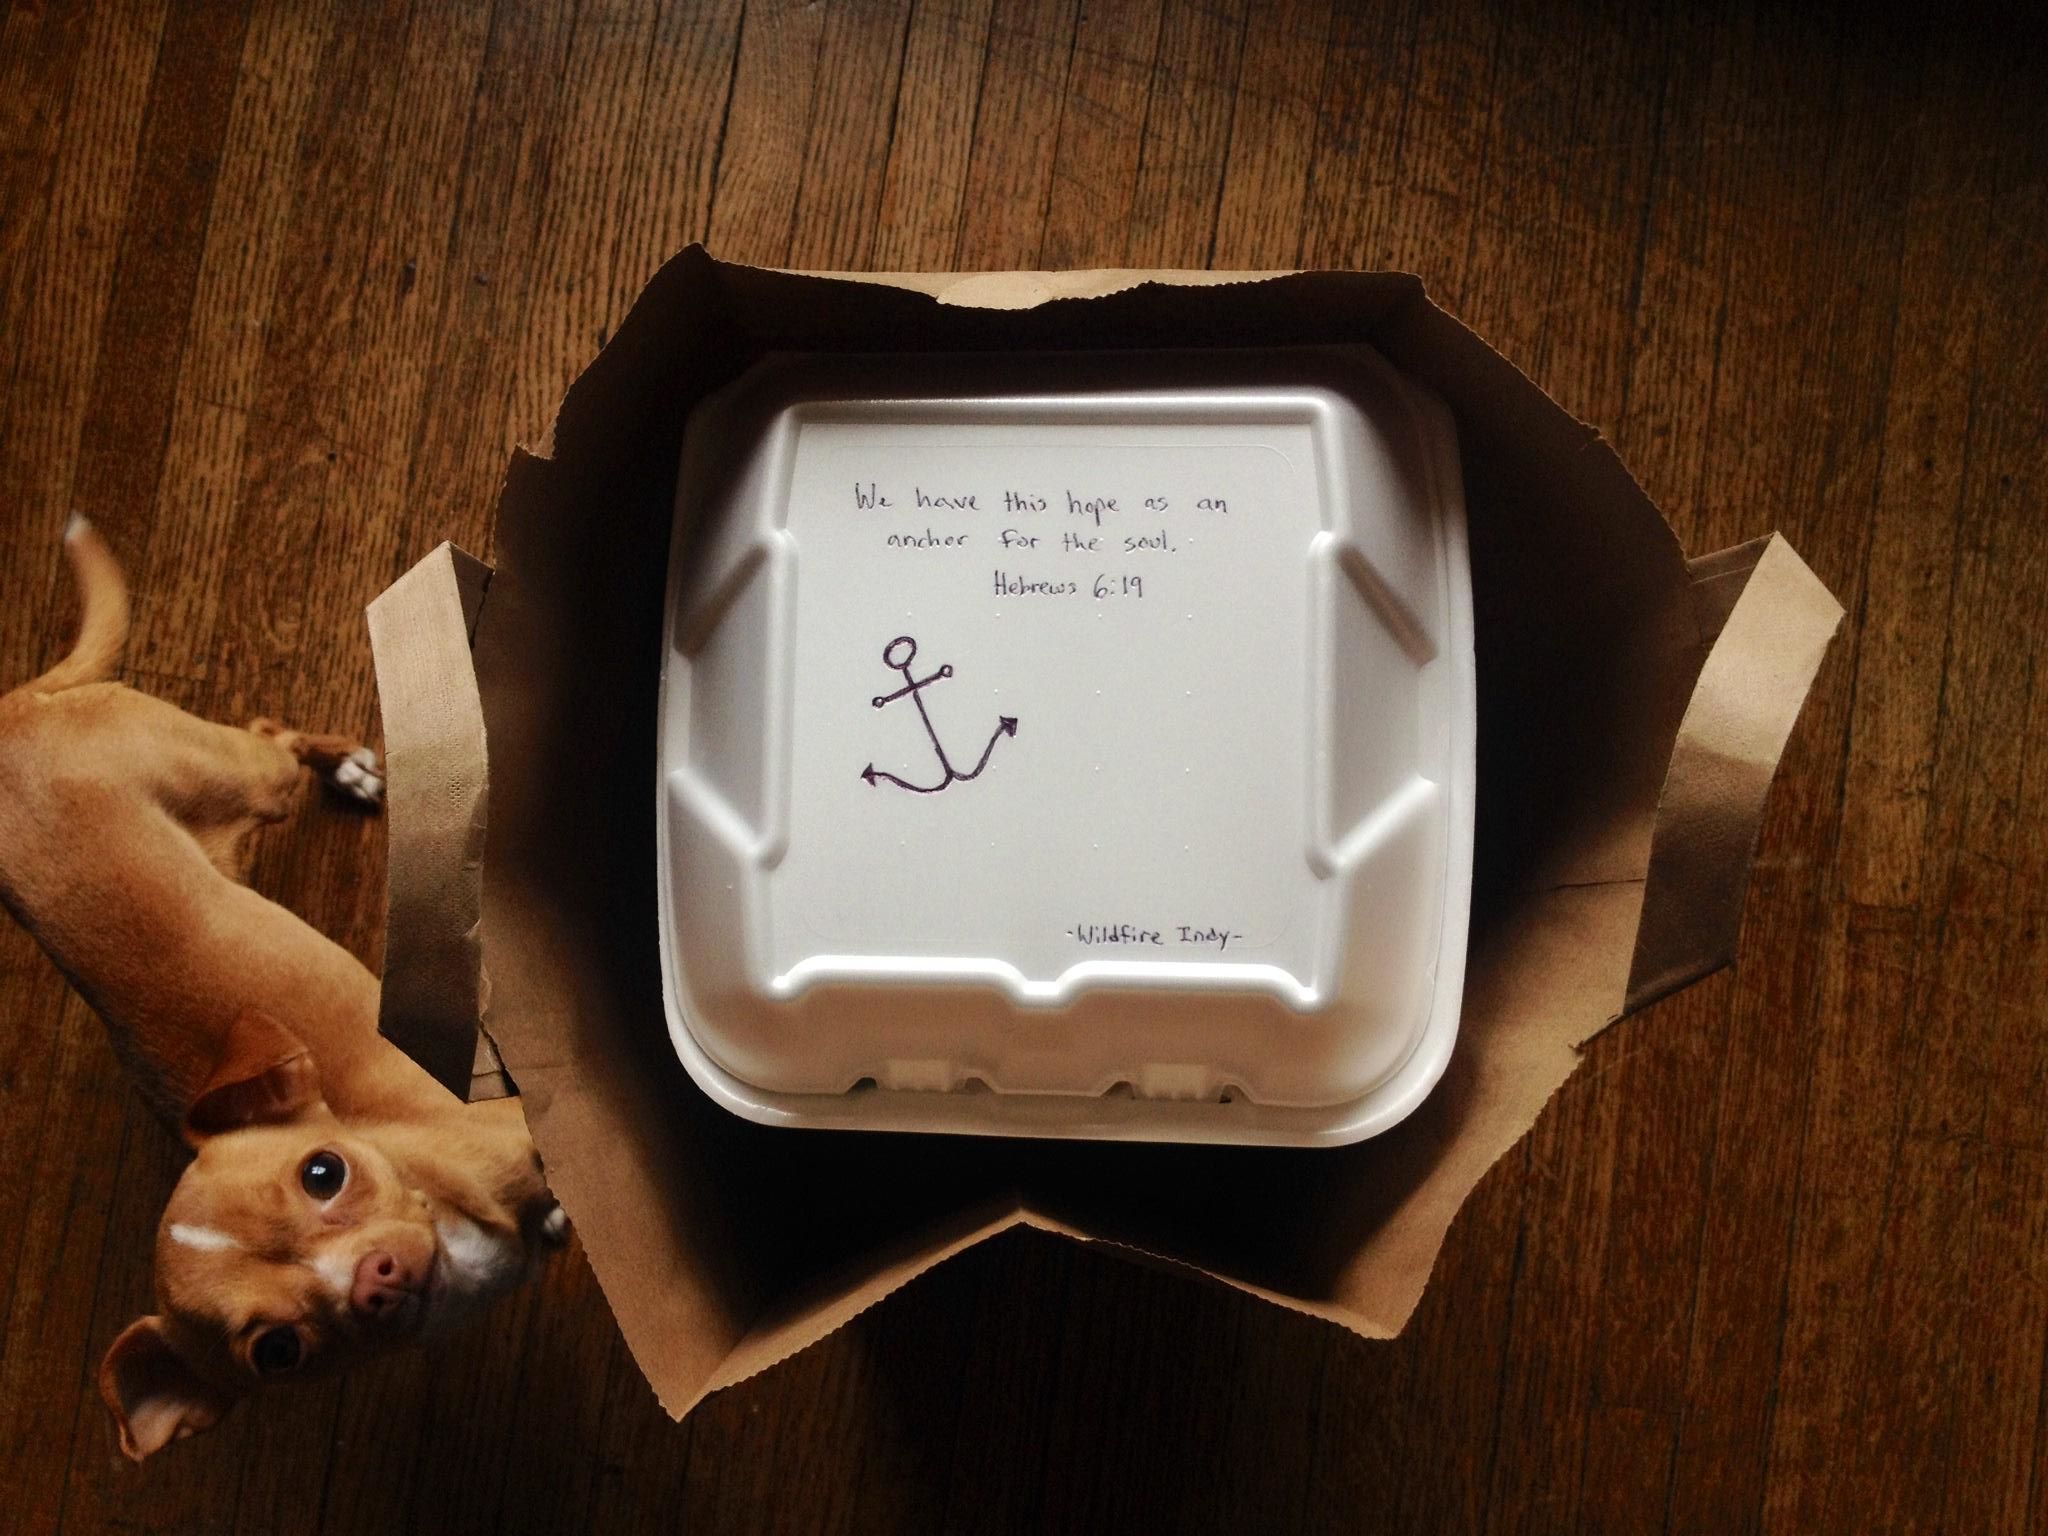 We have this hope as an
anchor for the soul.
Hebrews 6:19
-Wildfire Indy-